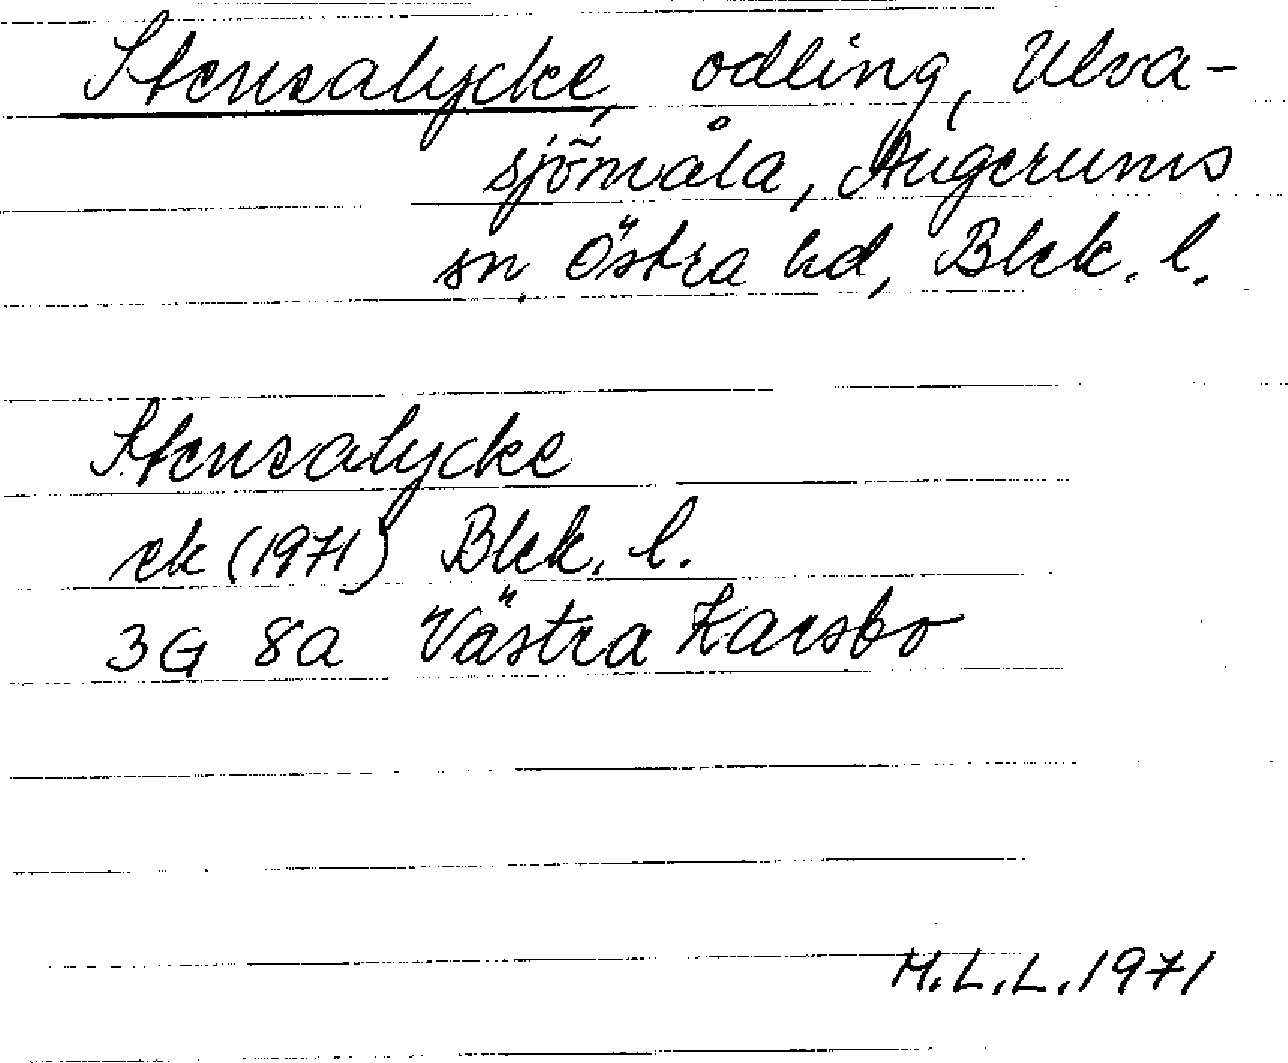 Stensalycke, odling, Ulva-
sjömåla, Augerums
sn, Östra hd, Blek. l.
Stensalycke
ek (1971) Blek. l.
3G 8a Västra Karsbo
M.L.L. 1971